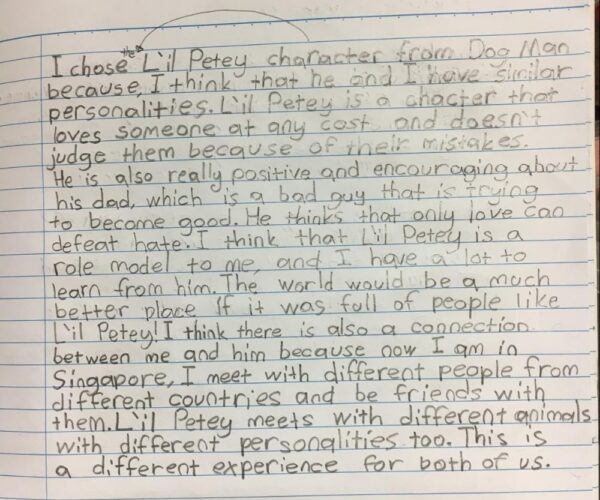 the
I chose L'il Petey character from Dog Man
because, I think that he and I have similar
personalities. L'il Petey is a chacter that
loves someone at any cost and doesn't
judge them because of their mistakes.
He is also really positive and encouraging about
his dad, which is a bad guy that is trying
to become good. He thinks that only love can
defeat hate. I think that L'il Petey is a
role model to me, and I have a lot to
learn from him. The world would be a much
better place if it was full of people like
L'il Petey! I think there is also a connection
between me and him because now I am in
Singapore, I meet with different people from
different countries and be friends with
them. L'il Petey meets with different animals
with different personalities too. This is
a different experience for both of us.